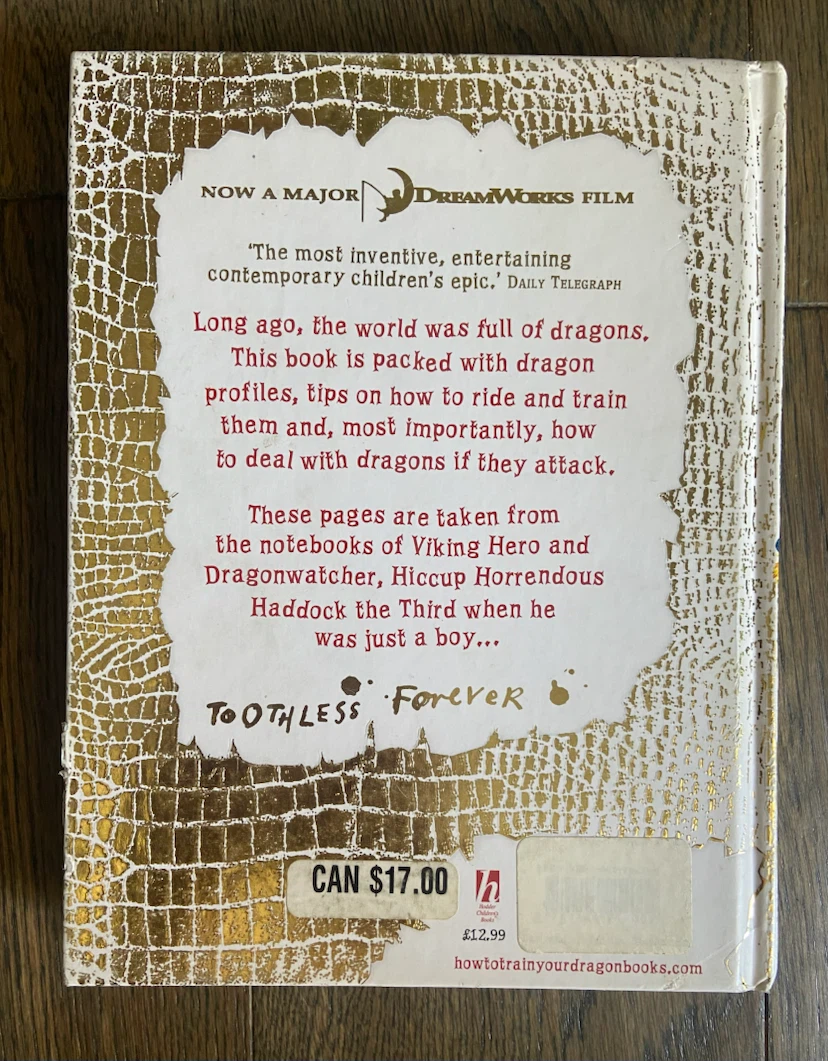 NOW A MAJOR DREAMWORKS FILM
‘The most inventive, entertaining
contemporary children's epic.’ DAILY TELEGRAPH
Long ago, the world was full of dragons.
This book is packed with dragon
profiles, tips on how to ride and train
them and, most importantly, how
to deal with dragons if they attack.
These pages are taken from
the notebooks of Viking Hero and
Dragonwatcher, Hiccup Horrendous
Haddock the Third when he
was just a boy...
TOOTHLESS Forever
CAN $17.00
h
Hodder
Children's
Books
£12.99
howtotrainyourdragonbooks.com